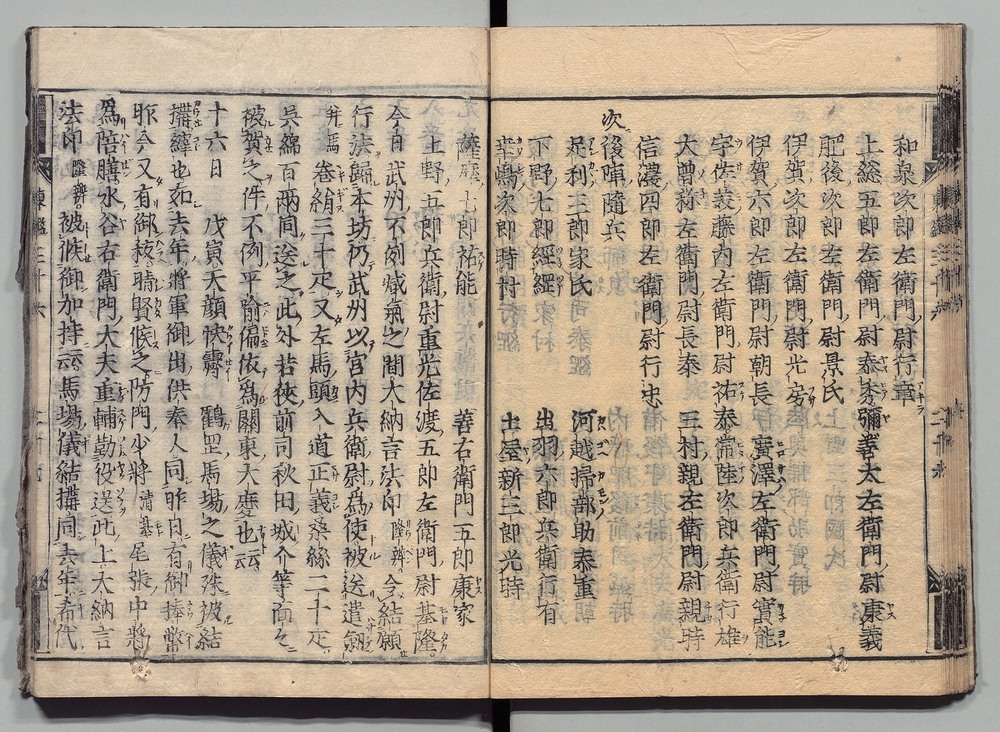 和泉次郎左衛門尉行章
上総五郎左衛門尉泰秀 彌善太左衛門尉康義
肥後次郎左衛門尉景氏
伊賀次郎左衛門尉光房
伊賀六郎左衛門尉朝長 廣澤左衛門尉實能
宇佐美藤内左衛門尉祐泰 常陸次郎兵衛行雄
大曽祢左衛門尉長泰 三村親左衛門尉親時
信濃四郎左衛門尉行忠
次後陣隨兵
足利三郎家氏 河越掃部助泰重
下野七郎經經 出羽六郎兵衛行有
葦嶋次郎時村 土屋新三郎光時
薩摩七郎祐能 善右衛門五郎康家
上野五郎兵衛尉重光 佐渡五郎左衛門尉基隆
今日武州不例減氣之間大納言法印隆辨令結願
行法歸本坊仍武州以宮内兵衛尉為使被送遣劔
并馬 巻絹三十疋又左馬頭入道正義桑絲二十疋
呉綿百兩同送之此外若狹前司秋田城介等面々
被賀之件不例平愈偏依為關東大慶也云云
十六日 戊寅天顔快霽 鶴岡馬場之儀殊被結
搆縡也如去年將軍御出供奉人同昨日有御捧幣
昨今又有御祓晴賢候之防門少將清基尾張中將
為陪膳水谷右衛門大夫重輔勤役送此上大納言
法印隆辨被候御加持云云馬場儀結搆同去年希代
東鑑三十六